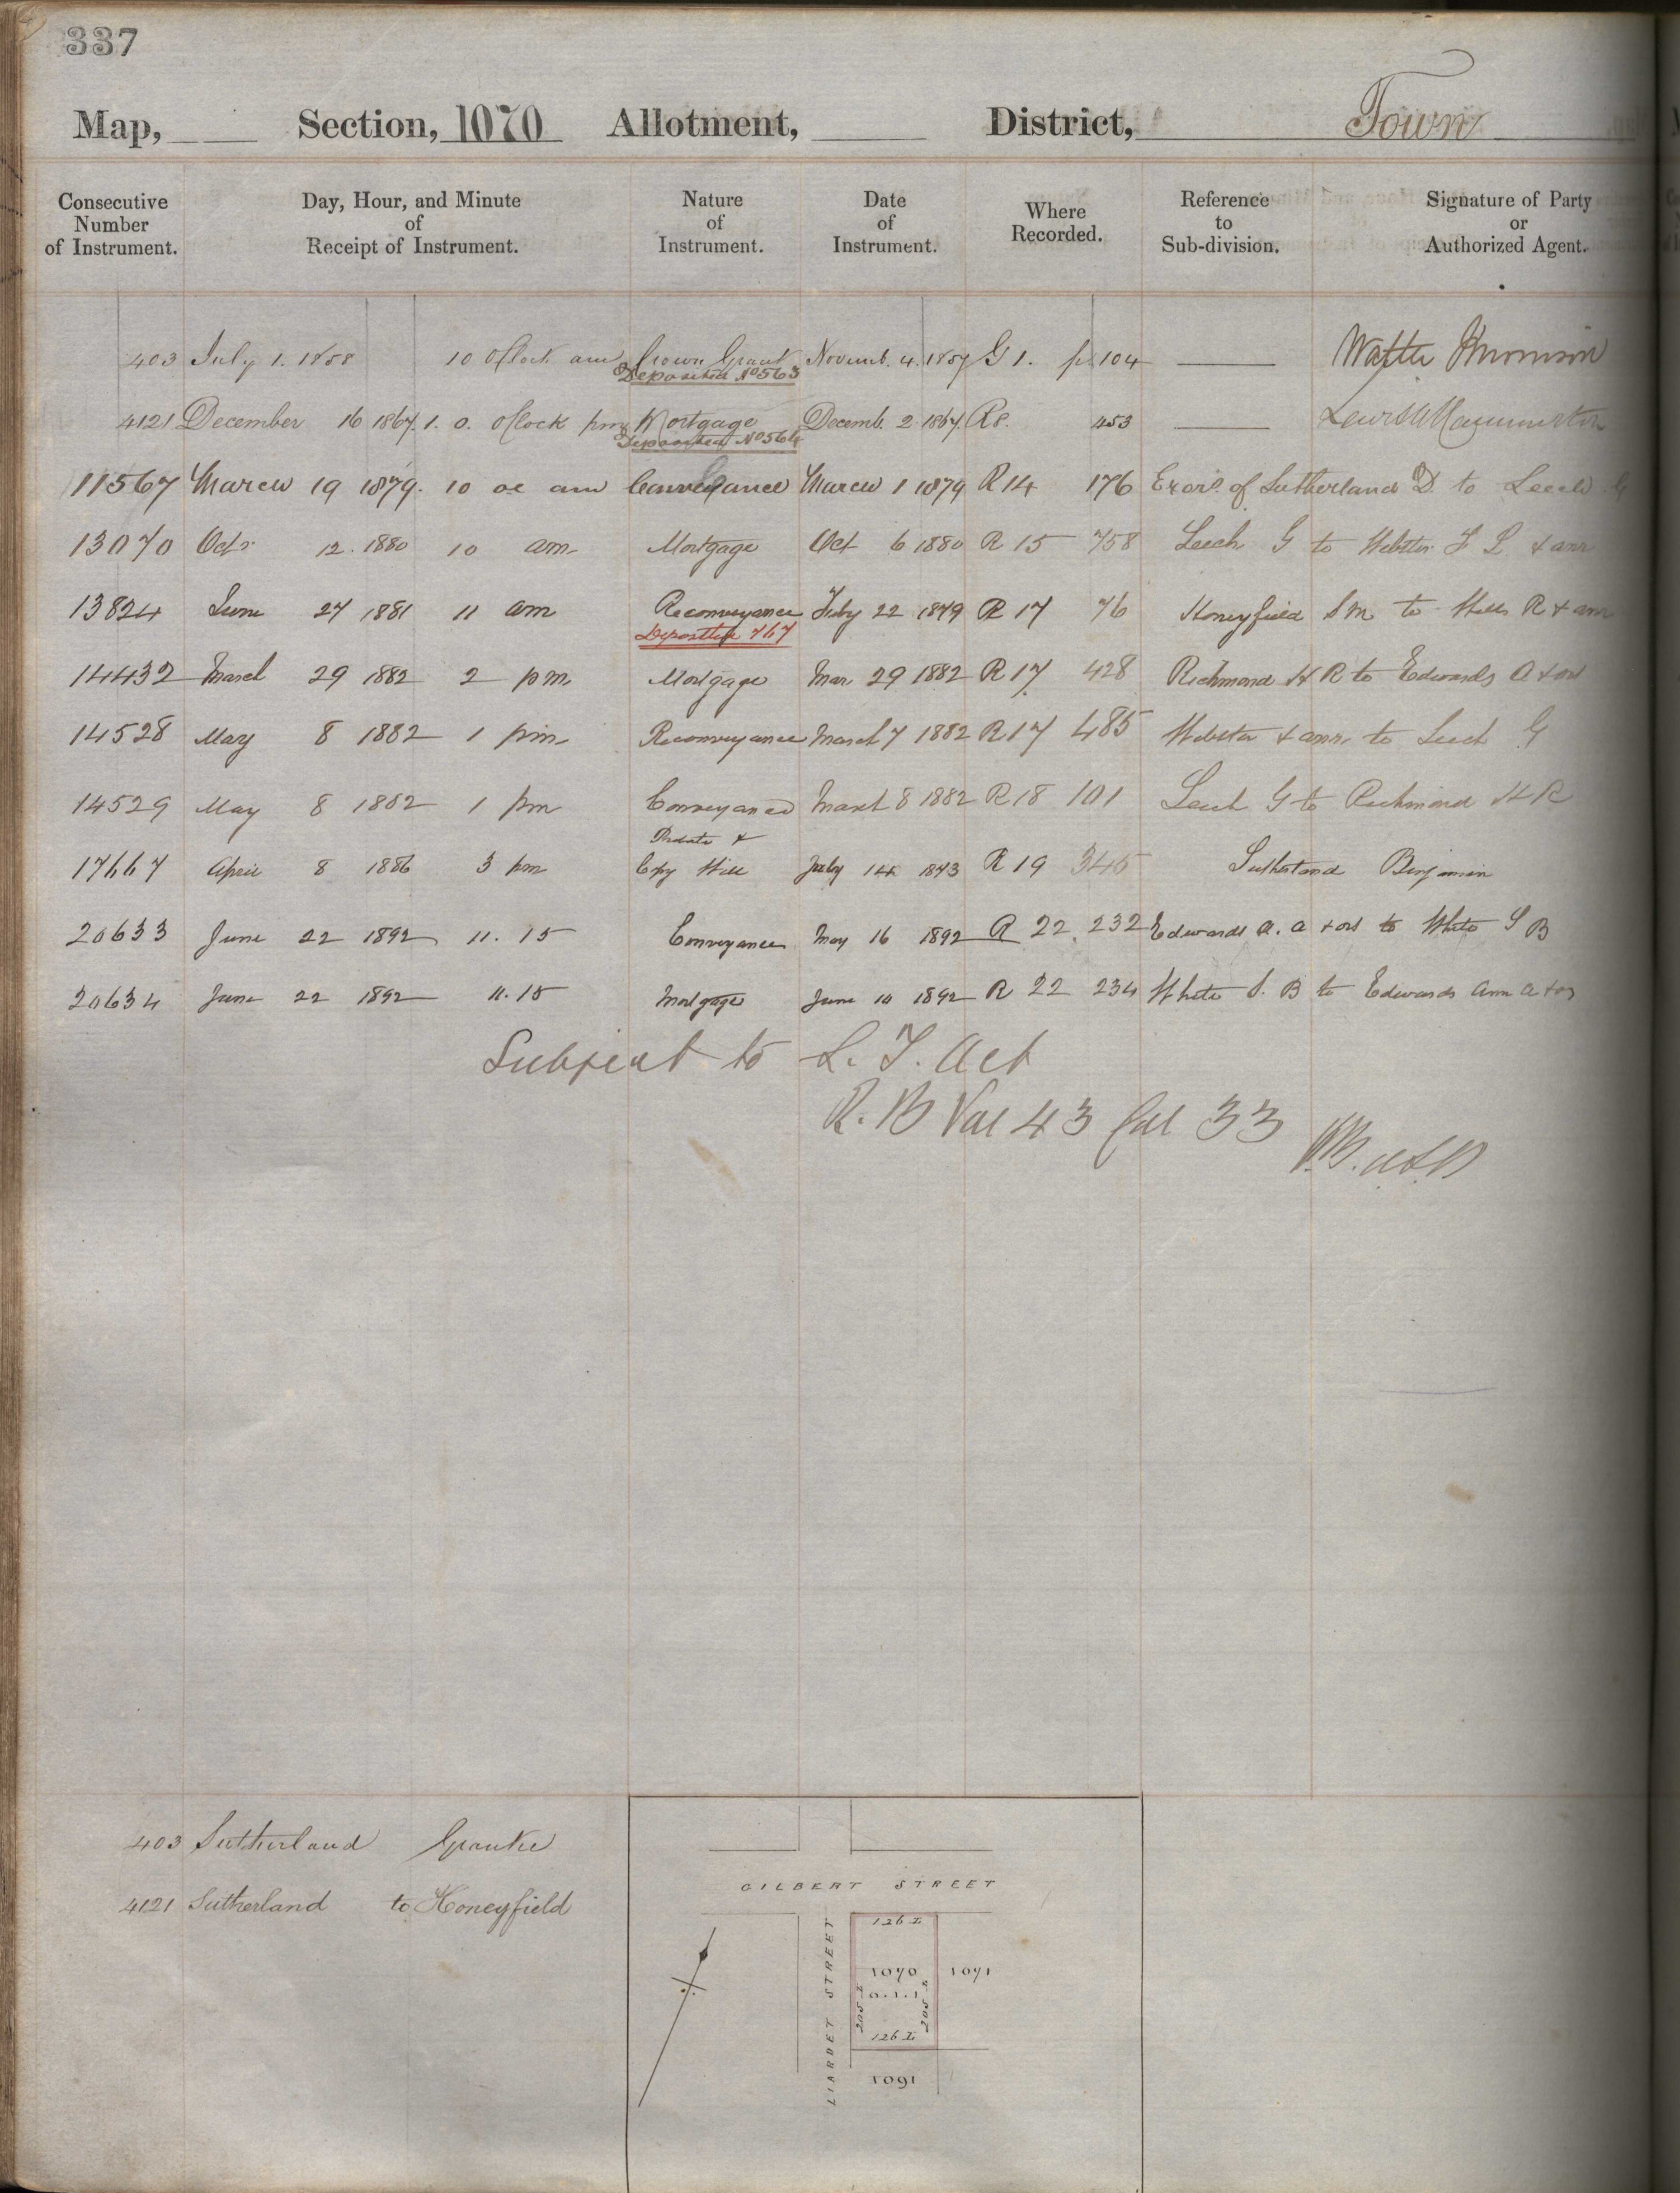 337
Map, Section, 1070 Allotment, District, Town
Consecutive Number of Instrument. Day, Hour, and Minute of Receipt of Instrument. Nature of Instrument. Date of Instrument. Where Recorded. Reference to Sub-division. Signature of Party or Authorized Agent.
403 July 1. 1858 10 Oclock am Crown Grant Novemb. 4. 1857 G 1. p. 104 Walter
Deposited No 563
4121 December 16 1867. 1. 0. Oclock pm Mortgage Decemb. 2 1867 R8. 453
Deposited No 564
11567 March 19 1879. 10 oc am Conveyance March 1 1879 R 14 176 Exors. of Sutherland D to Leech G
13070 Octr 12. 1880 10 am Mortgage Oct 6 1880 R 15 758 Leech G to Webster F L & anr
13824 June 27 1881 11 am Reconveyance Feby 22 1879 R 17 76 Honeyfield S M to Hills R & anr
Deposited 767
14432 March 29 1882 2 pm Mortgage Mar 29 1882 R 17 428 Richmond H R to Edwards A & ors
14528 May 8 1882 1 pm Reconveyance March 7 1882 R 17 485 Webster & anr. to Leech G
14529 May 8 1882 1 pm Conveyance March 8 1882 R 18 101 Leech G to Richmond H R
Probate &
17667 April 8 1886 3 pm Copy Will July 14 1873 R 19 345 Sutherland Benjamin
20633 June 22 1892 11. 15 Conveyance May 16 1892 R 22 232 Edwards A. A & ors to White S B
20634 June 22 1892 11. 15 Mortgage June 10 1892 R 22 234 White S. B to Edwards Ann A & ors
Subject to L. T. Act
R. B Vol 43 fol 33
403 Sutherland Grantee
4121 Sutherland to Honeyfield
GILBERT STREET
LIARDET STREET
126 L
1070
1071
0.1.1
205 L
205 L
126 L
1091